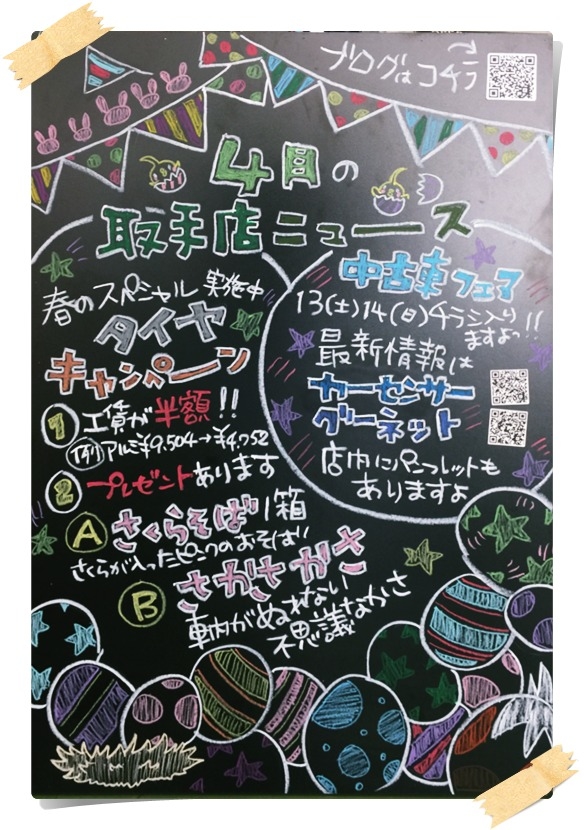 ブログはコチラ
4月の
取手店ニュース
春のスペシャル 実施中
タイヤ
キャンペーン
① 工賃が半額!!
例)アルミ¥9,504→¥4,752
② プレゼントあります
A さくらそば1箱
さくらが入ったピンクのおそば!
B さかさかさ
車内がぬれない
不思議なかさ
中古車フェア
13(土)14(日)チラシ入り
ますよっ!!
最新情報は
カーセンサー
グーネット
店内にパンフレットも
ありますよ